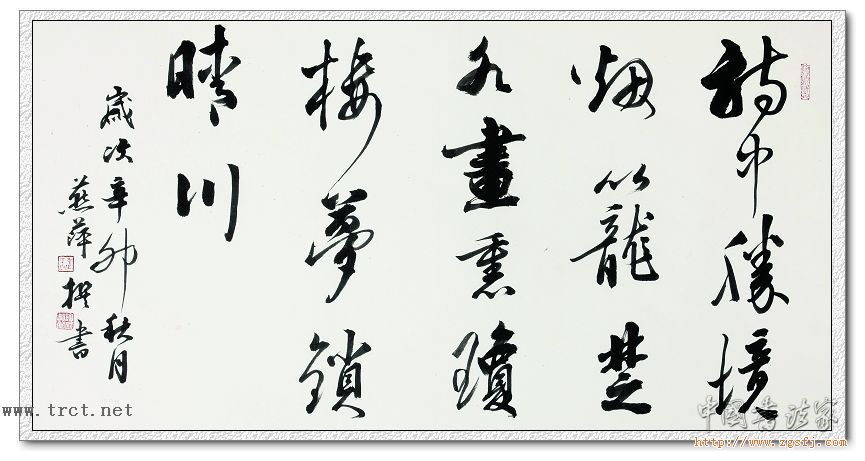 詩中勝境
烟籠楚
水畫熏瓊
樓夢鎖
晴川
歲次辛卯秋月
燕萍撰書
www.trct.net
中国书法家
http://www.zgsfj.com